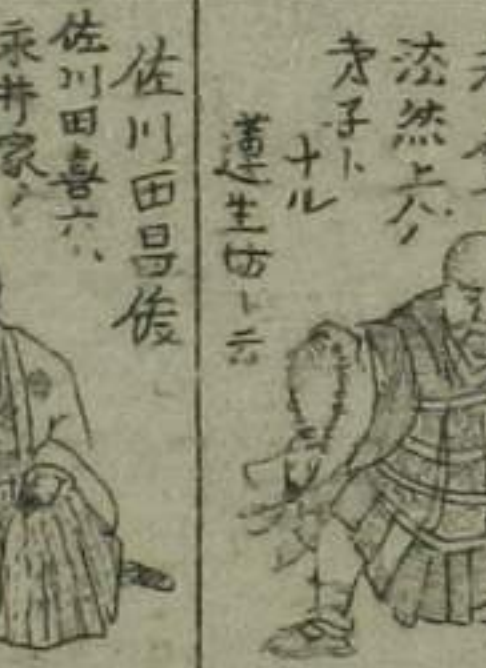 法然上人ノ
寺子ト
ナル
蓮生坊ト云
佐川田昌俊
佐川田喜六ハ
永井家ノ